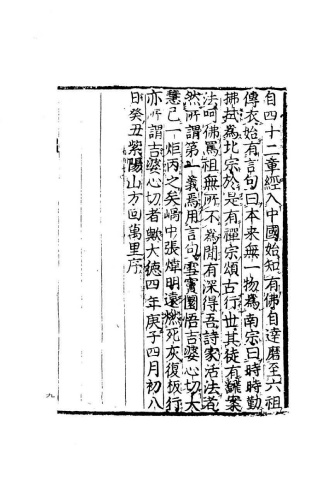 自四十二章經入中國始知有佛自達磨至六祖
傳衣始有言句曰本來無一物爲南宗曰時時勤
拂拭爲北宗於是有禪宗頌古行世其徒有翻案
法呵佛罵祖無所不爲間有深得吾詩家活法者
然所謂第一義焉用言句雪竇圜悟老婆心切大
慧已一炬丙之矣嵎中張煒明遠燃死灰復板行
亦所謂老婆心切者歟大德四年庚子四月初八
日癸丑紫陽山方回萬里序
九